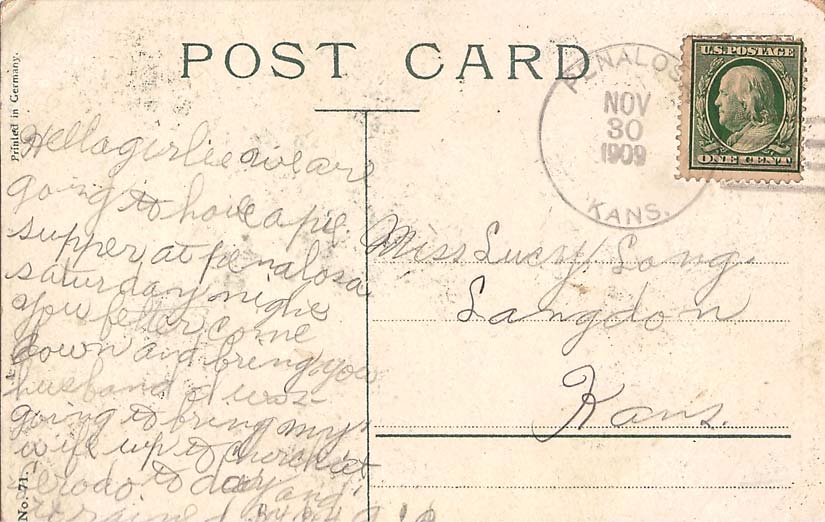 POST CARD
Printed in Germany.
PENALOS
NOV
30
1909
KANS.
U.S. POSTAGE
ONE CENT
Hello girlie we are
going to have a pie
supper at penalosa
saturday night
you better come
down and bring you
husband I was
going to bring my
wife up to
to day and
Miss Lucy Long.
Langdon
Kans.
No. 71.